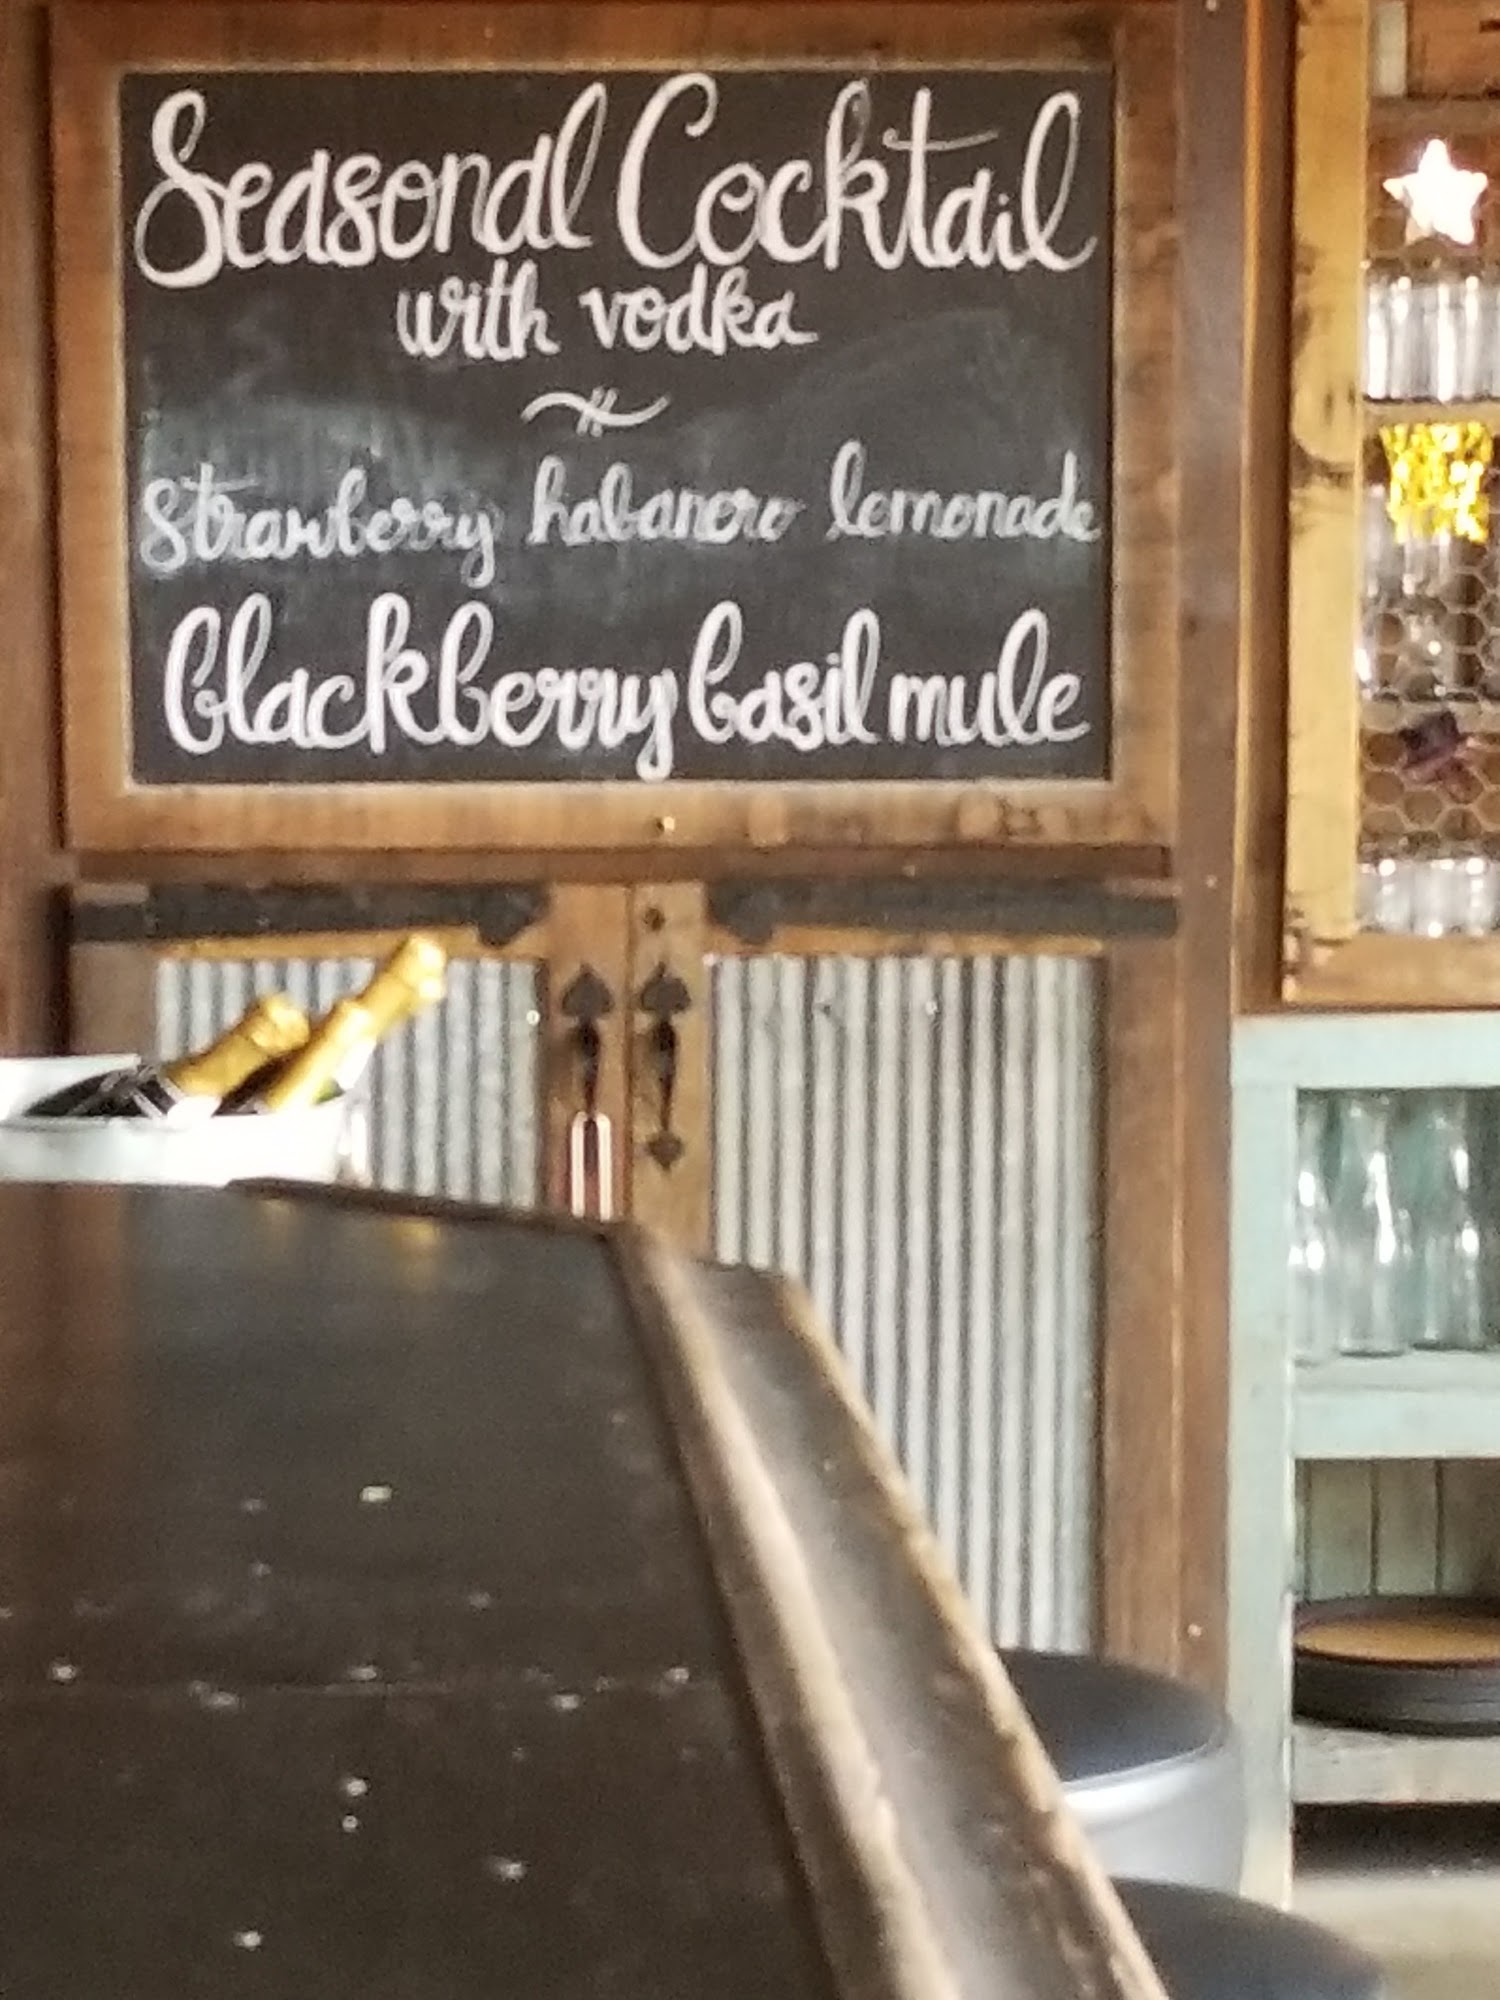 Seasonal Cocktail
with vodka
Strawberry habanero lemonade
blackberry basil mule